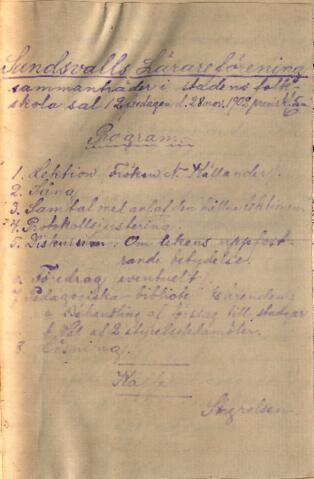 Sundsvalls Lärareförening
sammanträder i stadens folk-
skola sal 12 fredagen d. 28 nov. 1902
Program
1. Lektion Fröken N. Källander.
2. Sång
3. Samtal med anledn. den hållna lektionen.
4. Protokollsjustering.
5. Diskussion: Om lekens uppfost-
rande betydelse.
6. Föredrag eventuelt.
7. Pedagogiska bibliote Ärenden
a Behandling af förslag till stadgar
b Val af 2 styrelseledamöter.
8. Läsning.
Kaffe
Styrelsen